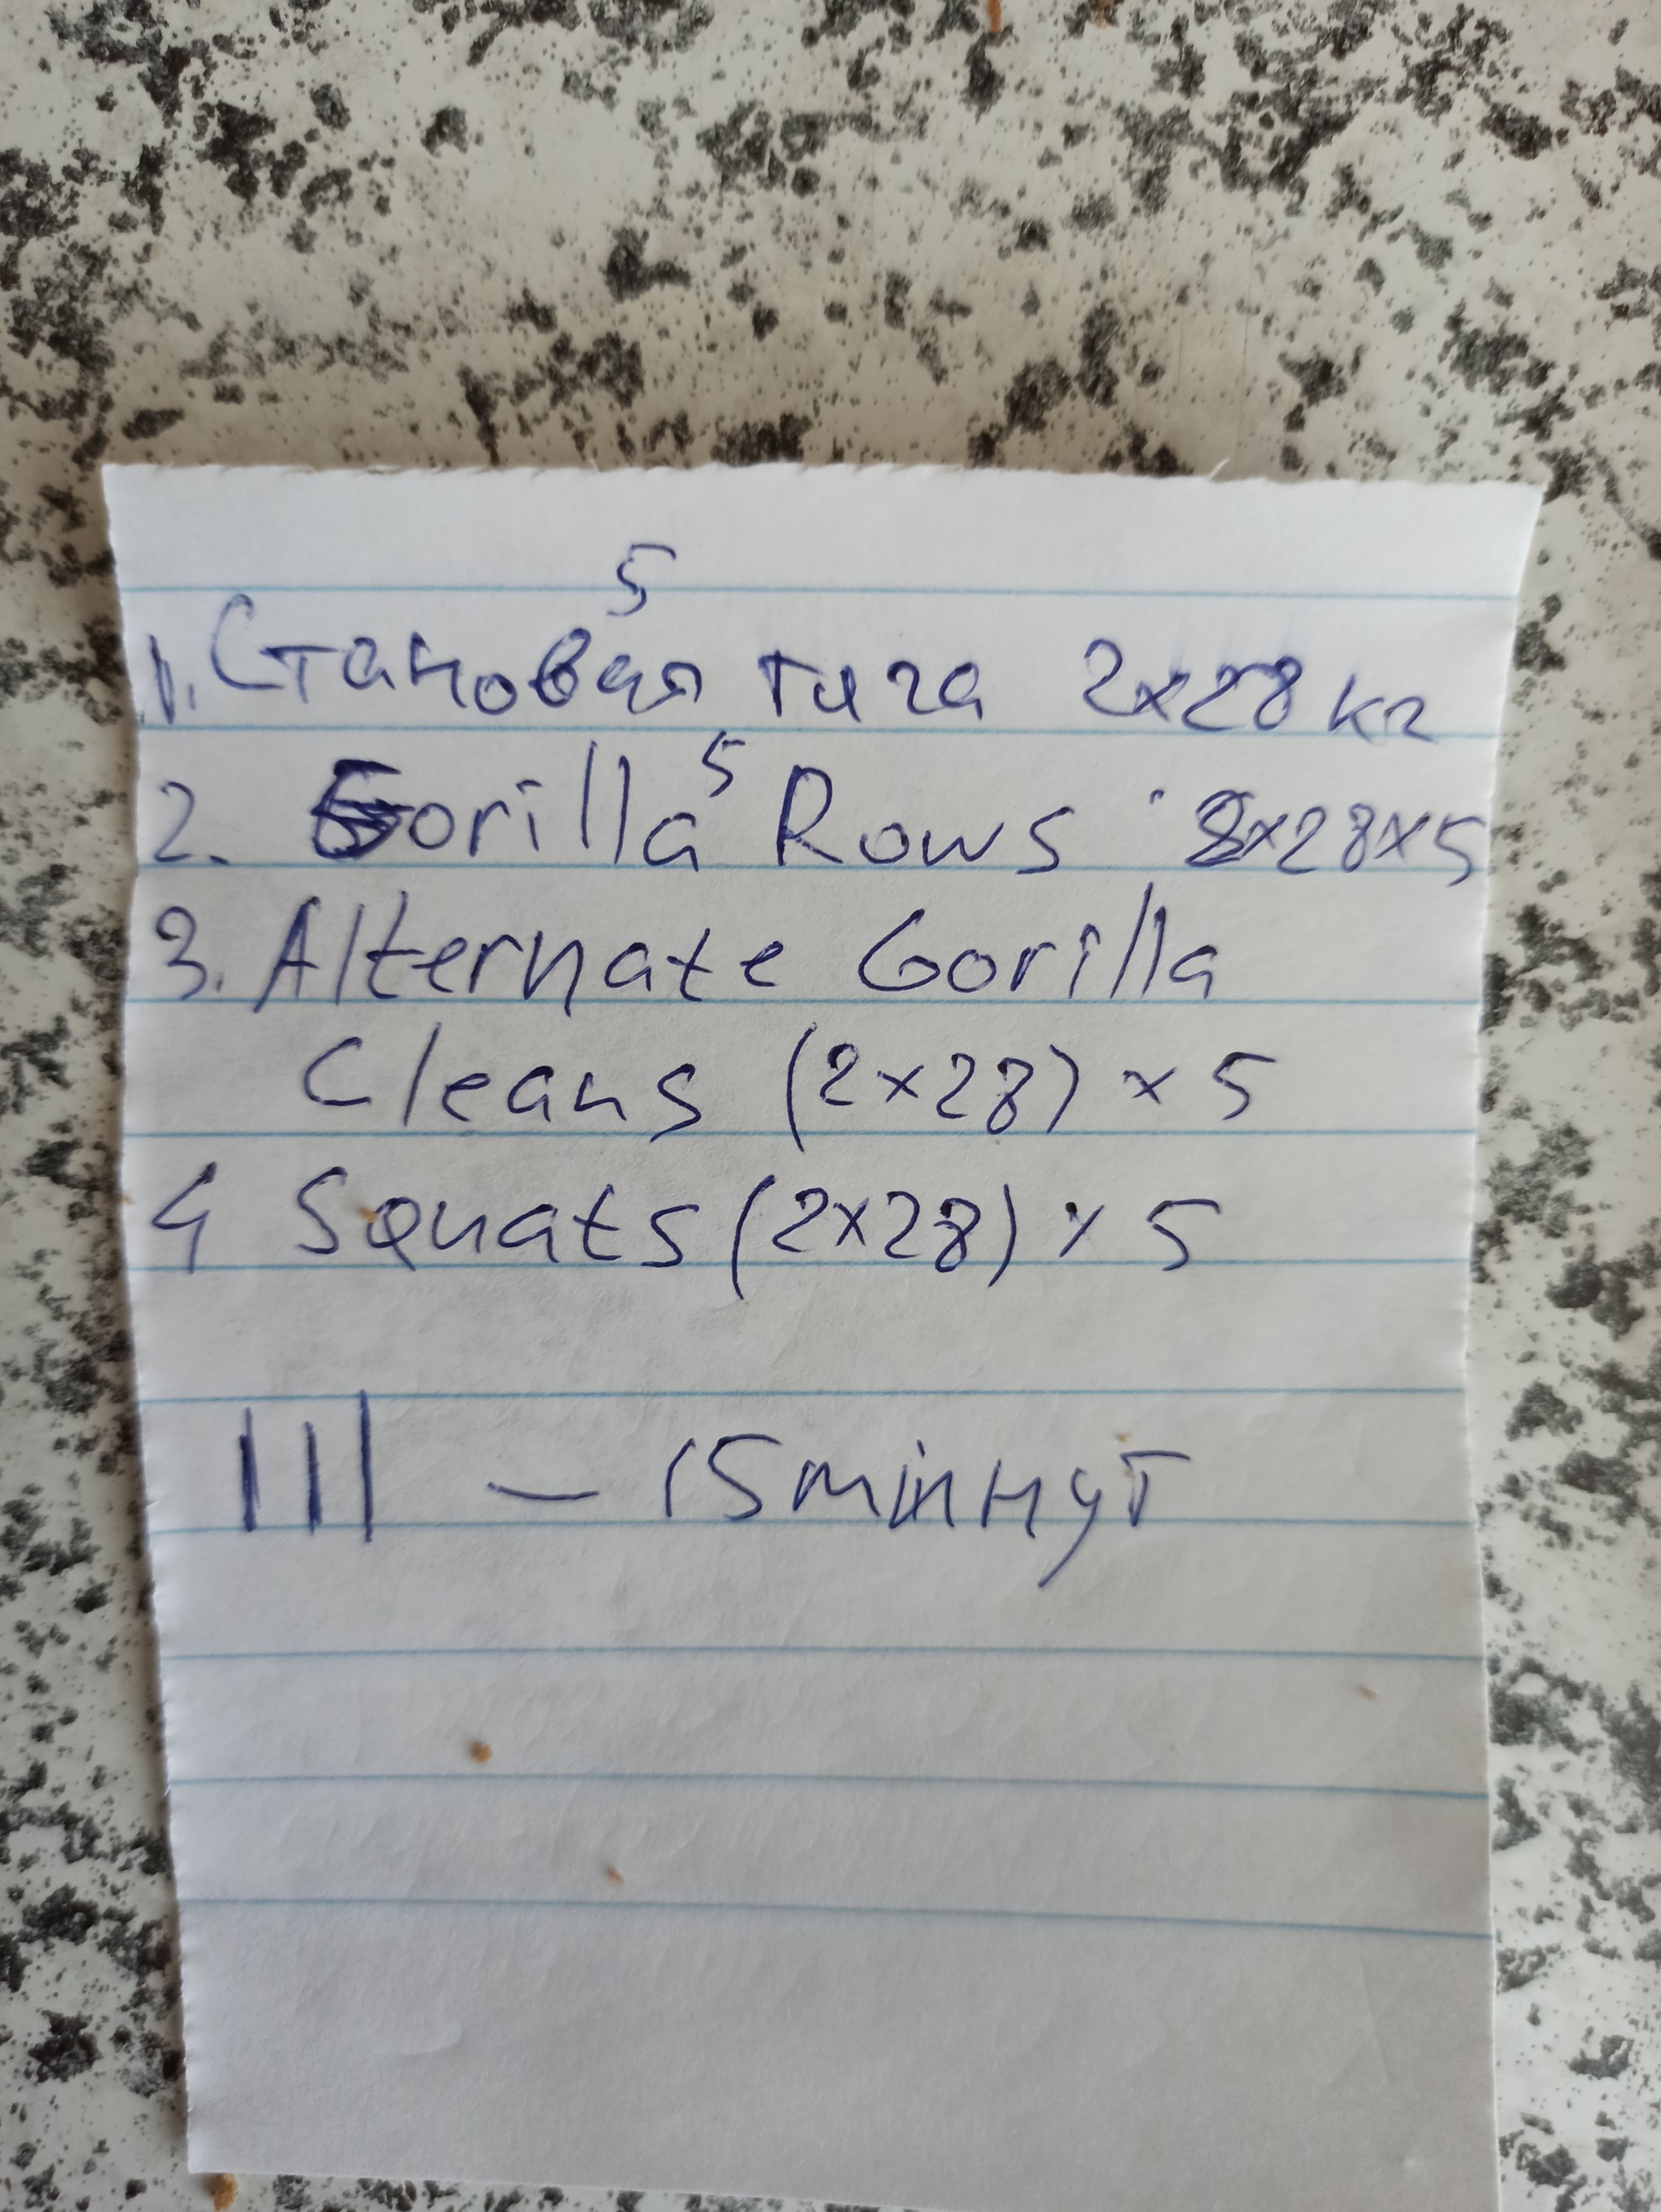 5
1. Становая тяга 2x28 кг
5
2. Gorilla Rows 2x28x5
3. Alternate Gorilla
Cleans (2x28) x 5
4 Squats (2x28) x 5
III — 15 минут